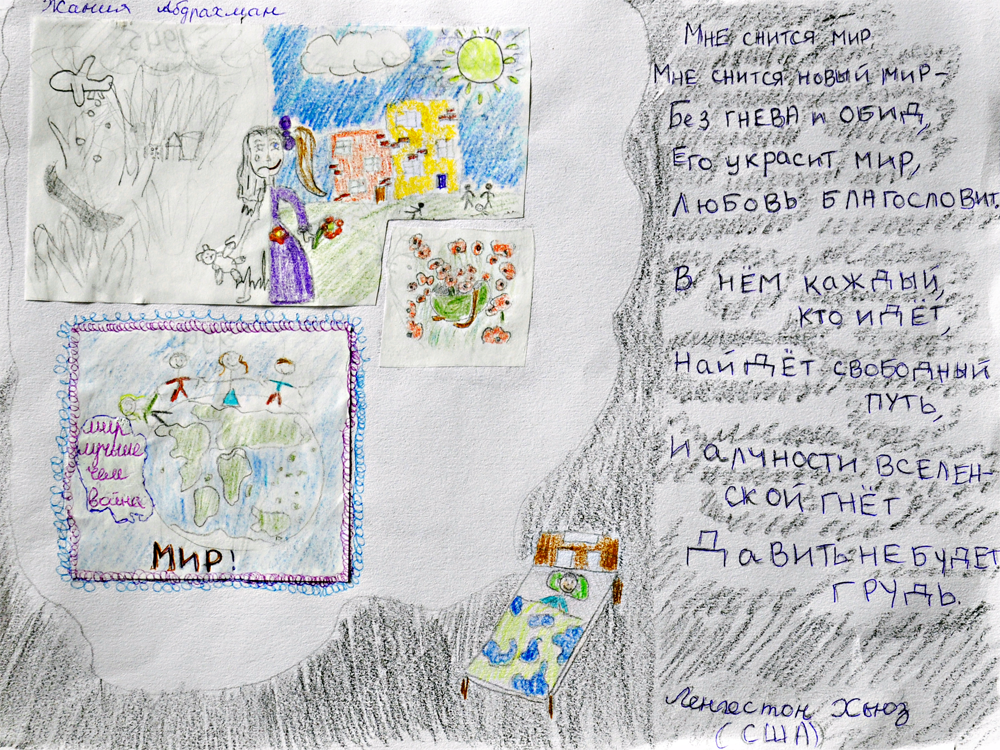 Жания Абдрахман
1945
Мне снится мир
Мне снится новый мир-
Без гнева и обид,
Его украсит мир,
Любовь благословит.
В нём каждый,
кто идёт,
Найдёт свободный
путь,
И алчности вселен-
ской гнёт
Давить не будет
грудь.
Ленгестон Хьюз
(США)
мир
лучше
чем
война
МИР!